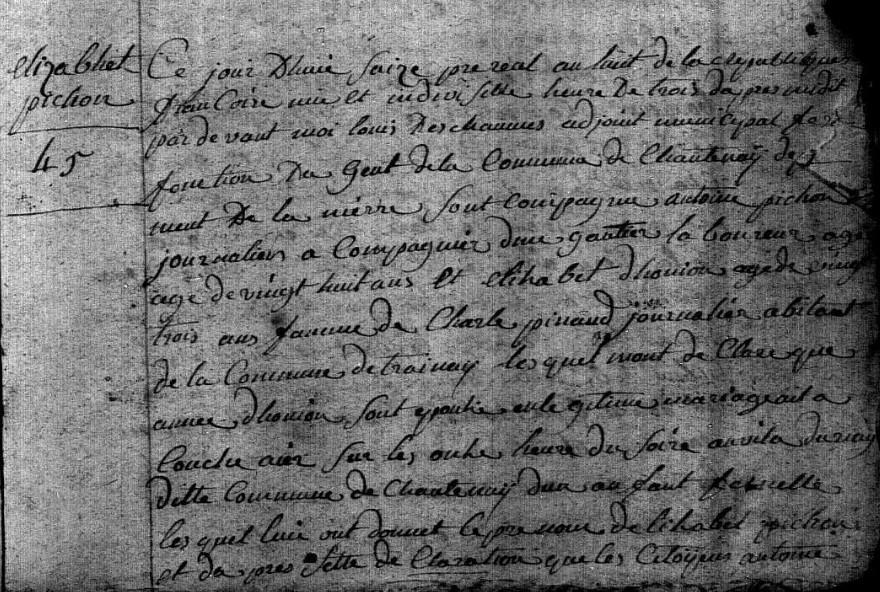 elizabhet
pichon
45
Ce jour Dhuie saize prereal au huit de la republique
francoire unie et indivisible heure De trois da pres midit
par de vant moi louis Deschaumes adjoint municipal
fonction Du gent de la Commune de Chantenaÿ de
ment De la nievre sont Compagrue antoine pichon
journalien a Compagnier dune gautier la boureur age
age de vingt huit ans et elihabet dhonion age de vingt
trois ans famme de Charle pinaud journalier abitant
de la Commune de trainay les quel mont de Clare que
annee dhonion sont epoutie en le gitime mariage ait a
Couchee aier sur les onhe heure du soire au vila durnay
ditte Commune de Chantenaÿ dun an fant femelle
les quel luie ont donnet le pre nom de lihabet pichon
et da pres sette de Claration que les Citoÿens antoine